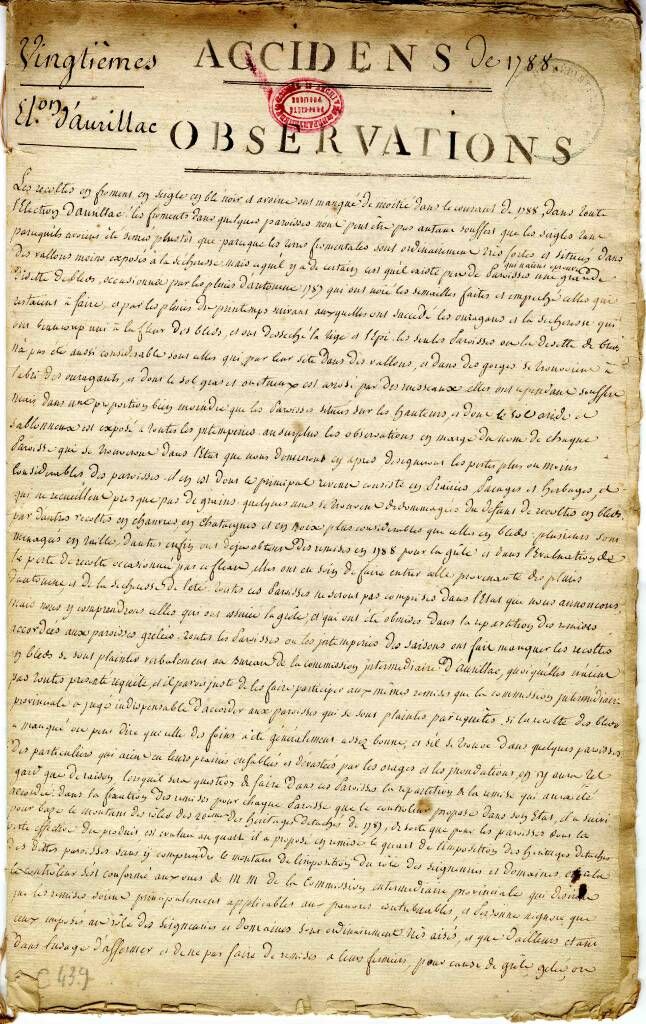 Vingtièmes ACCIDENS de 1788.
El.on d'aurillac
OBSERVATIONS
Les recoltes en froment, en seigle en blé noir et avoine ont manqué de moitié dans le courant de 1788, dans toute
l'Election d'aurillac: les froments dans quelques paroisses n'ont peut être pas autant souffert que les seigles tant
parcequils avoient été semés plustôt que parceque les terres fromentales sont ordinairement très fortes et situées dans
des vallons moins exposés à la secheresse mais ce qu'il y a de certain c'est qu'il existe peu de Paroisses qui n'aient eprouvé une grande
disette de bleds, occasionnée par les pluies d'automne 1787 qui ont noié les semailles faites et empeché celles qui
restaient à faire, et par les pluies du printemps suivant auxquelles ont succédé les ouragans et la secheresse qui
ont beaucoup nui à la fleur des bleds, et ont desseché la tige et l'Epi. les seules Paroisses ou la disette de bleds
n'a pas été aussi considerable sont celles qui par leur site dans des vallons, et dans des gorges se trouvoient à
l'abri des ouragants, et dont le sol gras et onctueux est arrosé par des ruisseaux. elles ont cependant souffert
mais dans une proportion bien moindre que les Paroisses situées sur les hauteurs, et dont le sol aride et
sablonneux est exposé à toutes les intemperies. au surplus les observations en marge du nom de chaque
Paroisse qui se trouveront dans l'Etat que nous donnerons cy après designeront les pertes plus ou moins
Considerables, des paroisses. il en est dont le principal revenu consiste en Prairies Pacages et herbages, et
qui ne recueillent presque pas de grains. quelques unes se trouvent dedommagées du défaut de recoltes en bleds
par d'autres recoltes en chanvres, en chataignes et en noix plus considerables que celles en bleds: plusieurs sont
menagés en taille. d'autres enfin ont deja obtenu des remises en 1788 pour la grêle et dans l'Evaluation de
la perte de recolte occasionnée par ce fleau, elles ont eu soin de faire entrer celle provenante des pluies
d'automne et de la secheresse de l'eté. toutes ces Paroisses ne seront pas comprises dans l'Etat que nous annonçons
mais nous y comprendrons celles qui ont essuié la grêle et qui ont été obmises dans la repartition des remises
accordées aux paroisses grêlées. toutes les Paroisses ou les intemperies des saisons ont fait manquer les recoltes
en bleds se sont plaintes verbalement au Bureau de la Commission intermediaire d'Aurillac, quoiqu'elles n'aient
pas toutes presenté requête, et il paroit juste de les faire participer aux mêmes remises que la commission intermediaire
provinciale a jugé indispensable d'accorder aux paroisses qui se sont plaintes par requêtes. si la recolte des bleds
a manqué on peut dire que celle des foins a été generalement assez bonne, et s'il se trouve dans quelques paroisses
des particuliers qui aient eu leurs prairies ensablées et devastées par les orages et les inondations, on y aura tel
egard que de raison, lorsqu'il sera question de faire dans ces Paroisses la repartition de la remise qui aura été
accordée. dans la fixation des remises pour chaque Paroisse que le controleur propose dans son Etat, il a suivi
pour base le montant des rôles des vingtièmes des heritages detachés de 1789, de sorte que pour les paroisses dont la
perte effective du produit est évaluée au quart il a proposé en remise le quart de l'imposition des heritages detachés
des dittes paroisses sans y comprendre le montant de l'imposition du rôle des seigneuries et domaines. en cela
le controleur s'est conformé aux vues de M.M. de la Commission intermediaire provinciale qui desire
que les remises soient principalement applicables aux pauvres contribuables, et personne n'ignore que
ceux imposés au rôle des Seigneuries et domaines sont ordinairement très aisés, et que d'ailleurs etant
dans l'usage d'affermer et de ne pas faire de remises à leurs fermiers, pour cause de grêle, gelée, ou
C 439